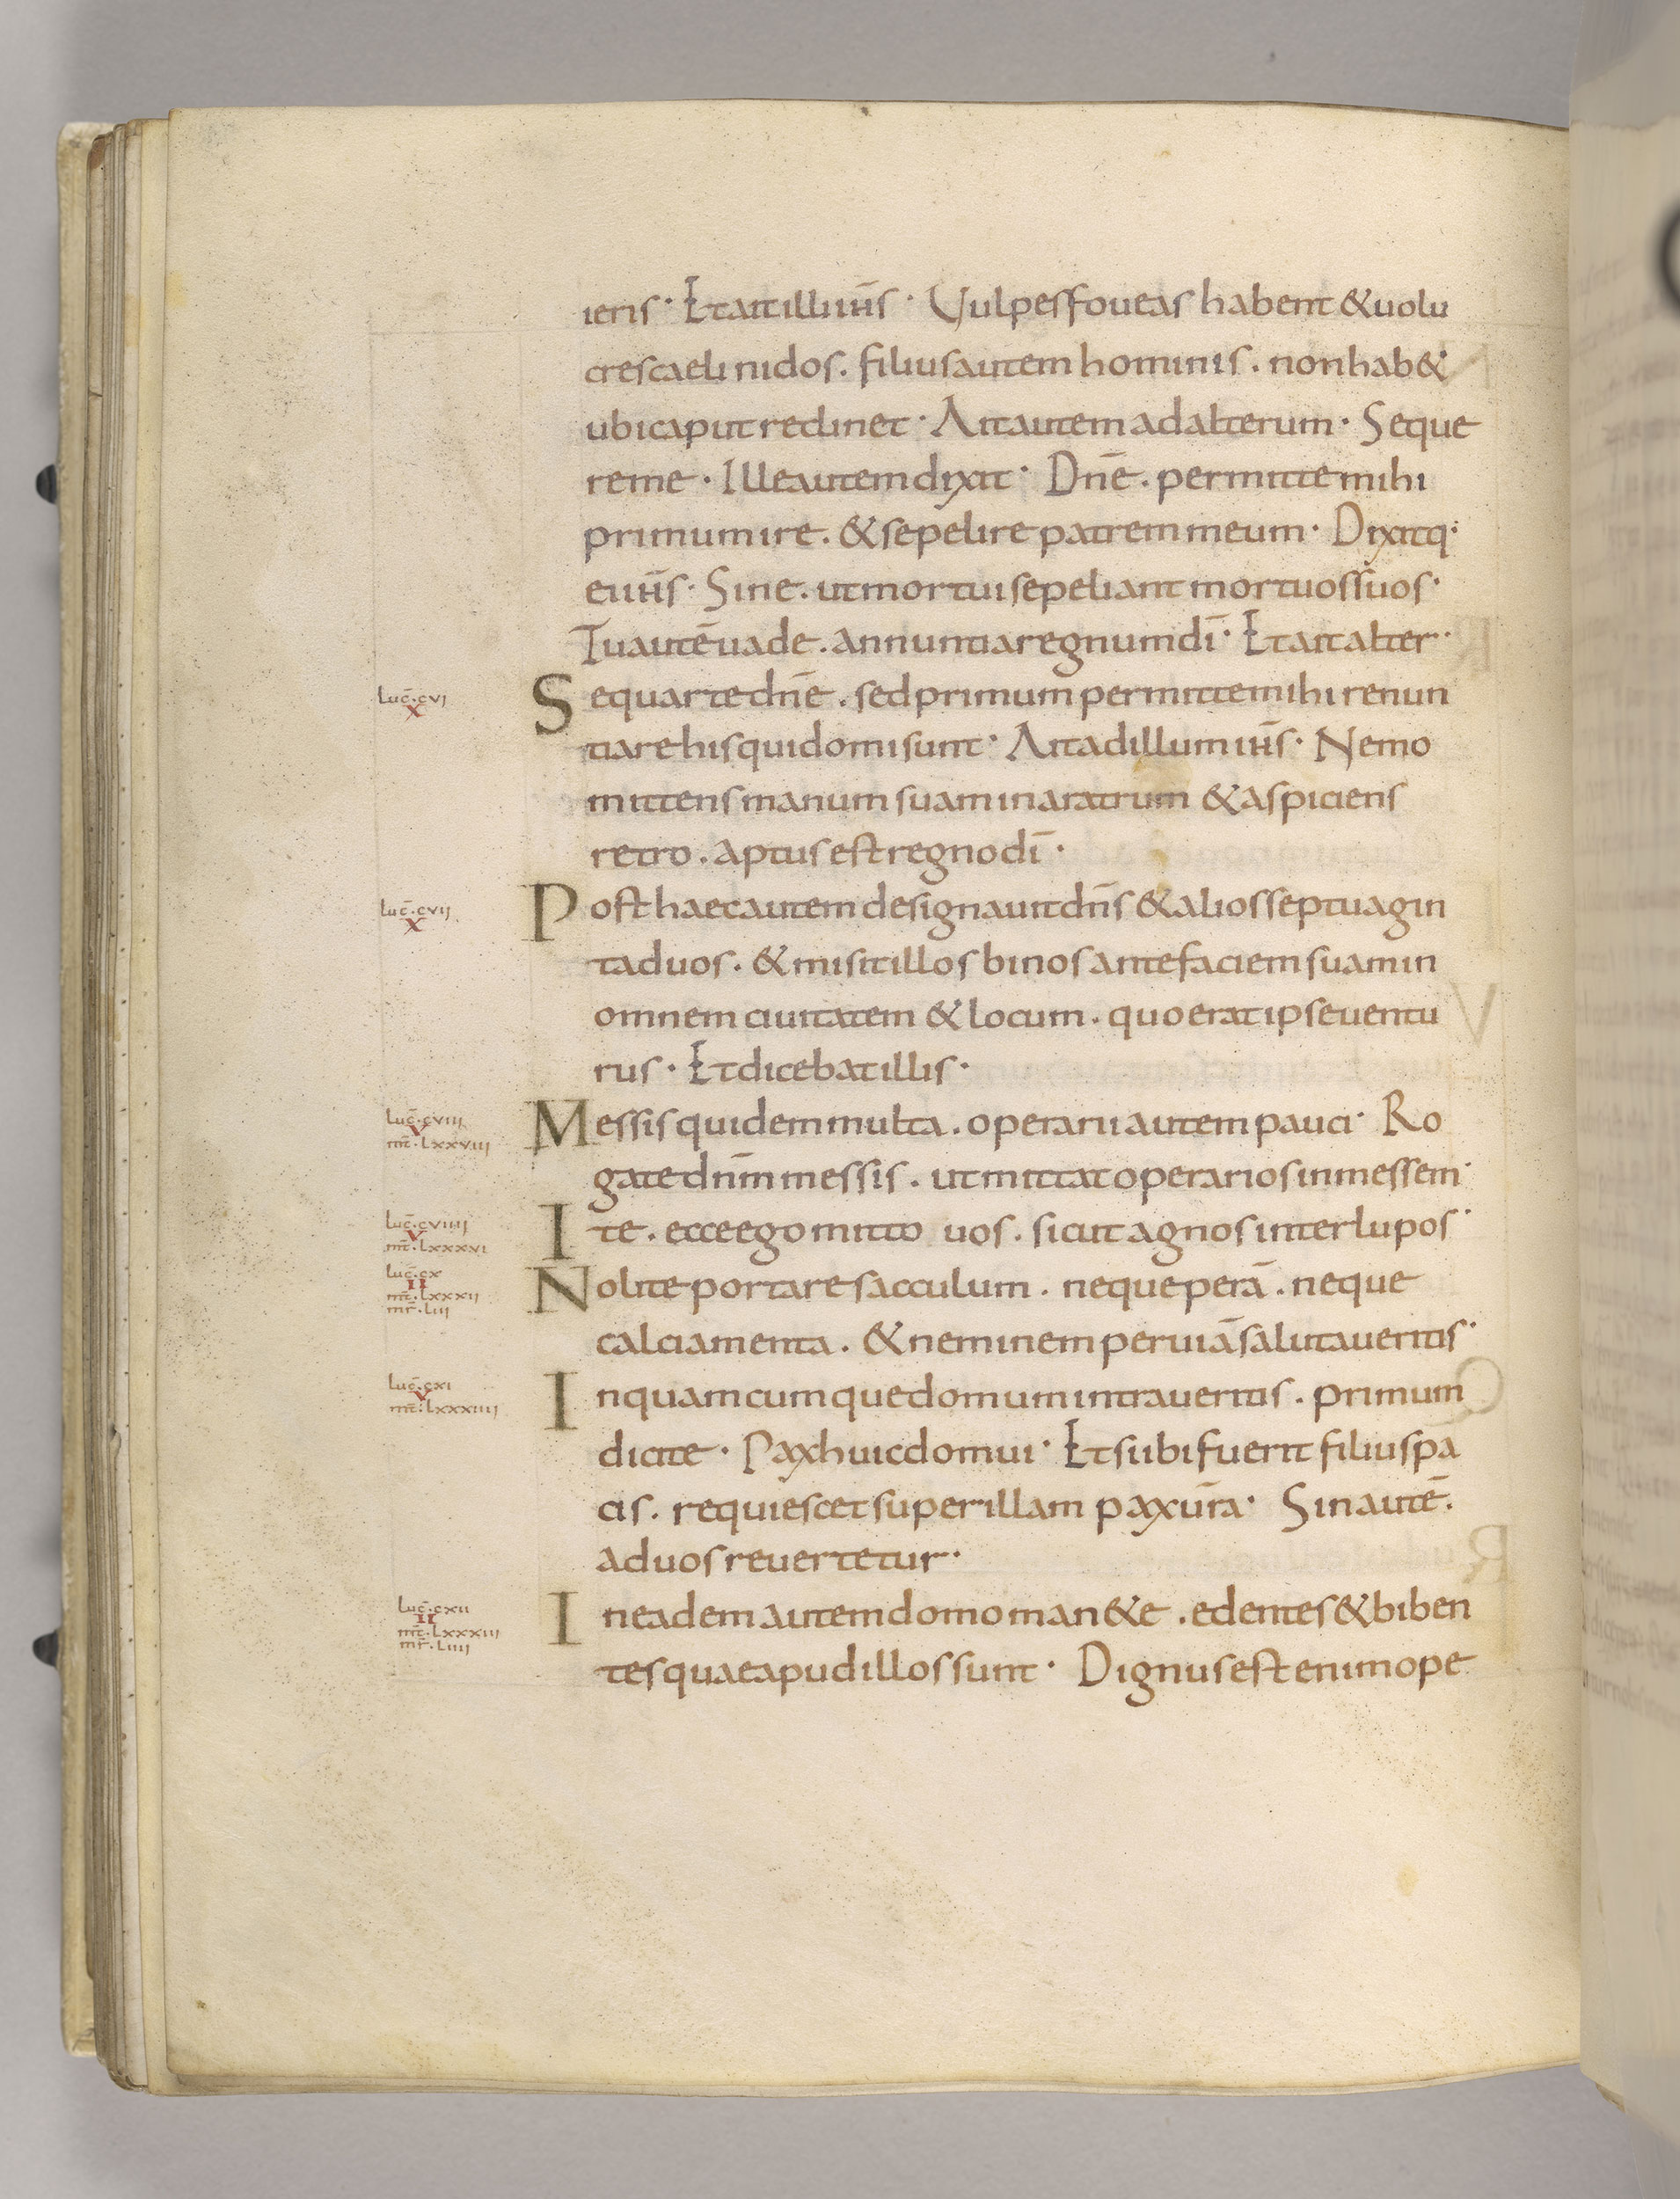 ieris · Et ait illi ihs̄ · Vulpes foueas habent & uolu
cres caeli nidos . filius autem hominis . non hab&
ubi caput reclinet · Ait autem ad alterum · Seque
re me · Ille autem dixit · Dnē . permitte mihi
primum ire . & sepelire patrem meum · Dixitq;
eu ihs̄ · Sine . ut mortui sepeliant mortuos suos ·
Tu autē uade . annuntia regnum dī · Et ait alter ·
Luc̄ . cvi
x
Sequar te dnē . sed primum permitte mihi renun
tiare his qui domi sunt · Ait ad illum ihs̄ · Nemo
mittens manum suam in aratrum & aspiciens
retro . aptus est regno dī ·
Luc̄ . cvii
x
Post haec autem designauit dns̄ & alios septuagin
ta duos . & misit illos binos ante faciem suam in
omnem ciuitatem & locum . quo erat ipse uentu
rus · Et dicebat illis ·
Luc̄ . cviii
v
mt̄ . Lxxviii
Messis quidem multa . operarii autem pauci · Ro
gate dnm̄ messis . ut mittat operarios in messem ·
Luc̄ . cviiii
v
mt̄ . Lxxxvi
Ite . ecce ego mitto uos . sicut agnos inter lupos ·
Luc̄ . cx
ii
mt̄ . Lxxxii
mr̄ . Liii
Nolite portare sacculum . neque perā . neque
calciamenta . & neminem per uiā salutaueritis ·
Luc̄ . cxi
v
mt̄ . Lxxxiiii
In quamcumque domum intraueritis . primum
dicite · Pax huic domui · Et si ibi fuerit filius pa
cis . requiescet super illam pax ur̄a · Sin autē .
ad uos reuertetur ·
Luc̄ . cxii
ii
mt̄ . Lxxxiii
mr̄ . Liiii
In eadem autem domo man&e . edentes & biben
tes quae apud illos sunt · Dignus est enim ope